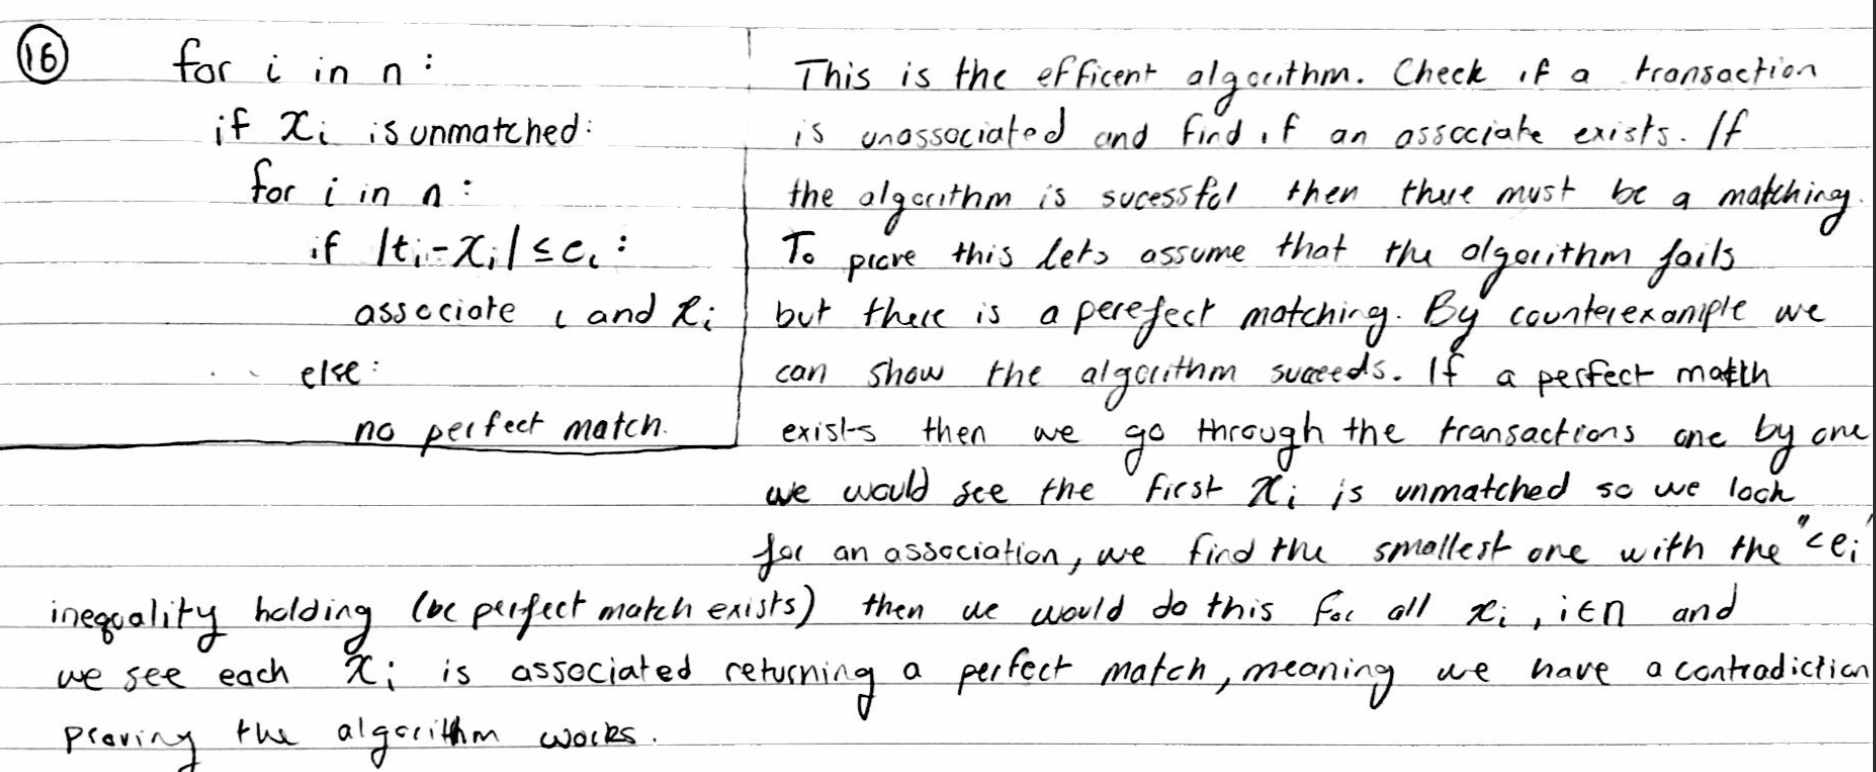 16
for i in n :
if xi is unmatched:
for i in n :
if |ti - xi| ≤ ei :
associate i and xi
else :
no perfect match.
This is the efficent algorithm. Check if a transaction
is unassociated and find if an associate exists. If
the algorithm is sucessful then there must be a matching.
To prove this lets assume that the algorithm fails
but there is a perefect matching. By counterexample we
can show the algorithm succeeds. If a perfect match
exists then we go through the transactions one by one
we would see the first xi is unmatched so we look
for an association, we find the smallest one with the "<ei"
inequality holding (bc perfect match exists) then we would do this for all xi, i∈n and
we see each xi is associated returning a perfect match, meaning we have a contradiction
proving the algorithm works.